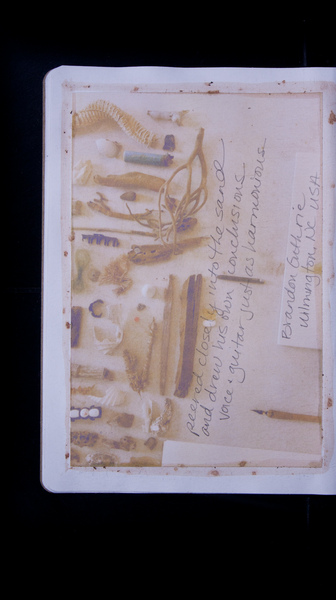 peered closely into the sand
and drew his own conclusions
voice & guitar just as harmonious
Brandon Guthrie
Wilmington, NC USA